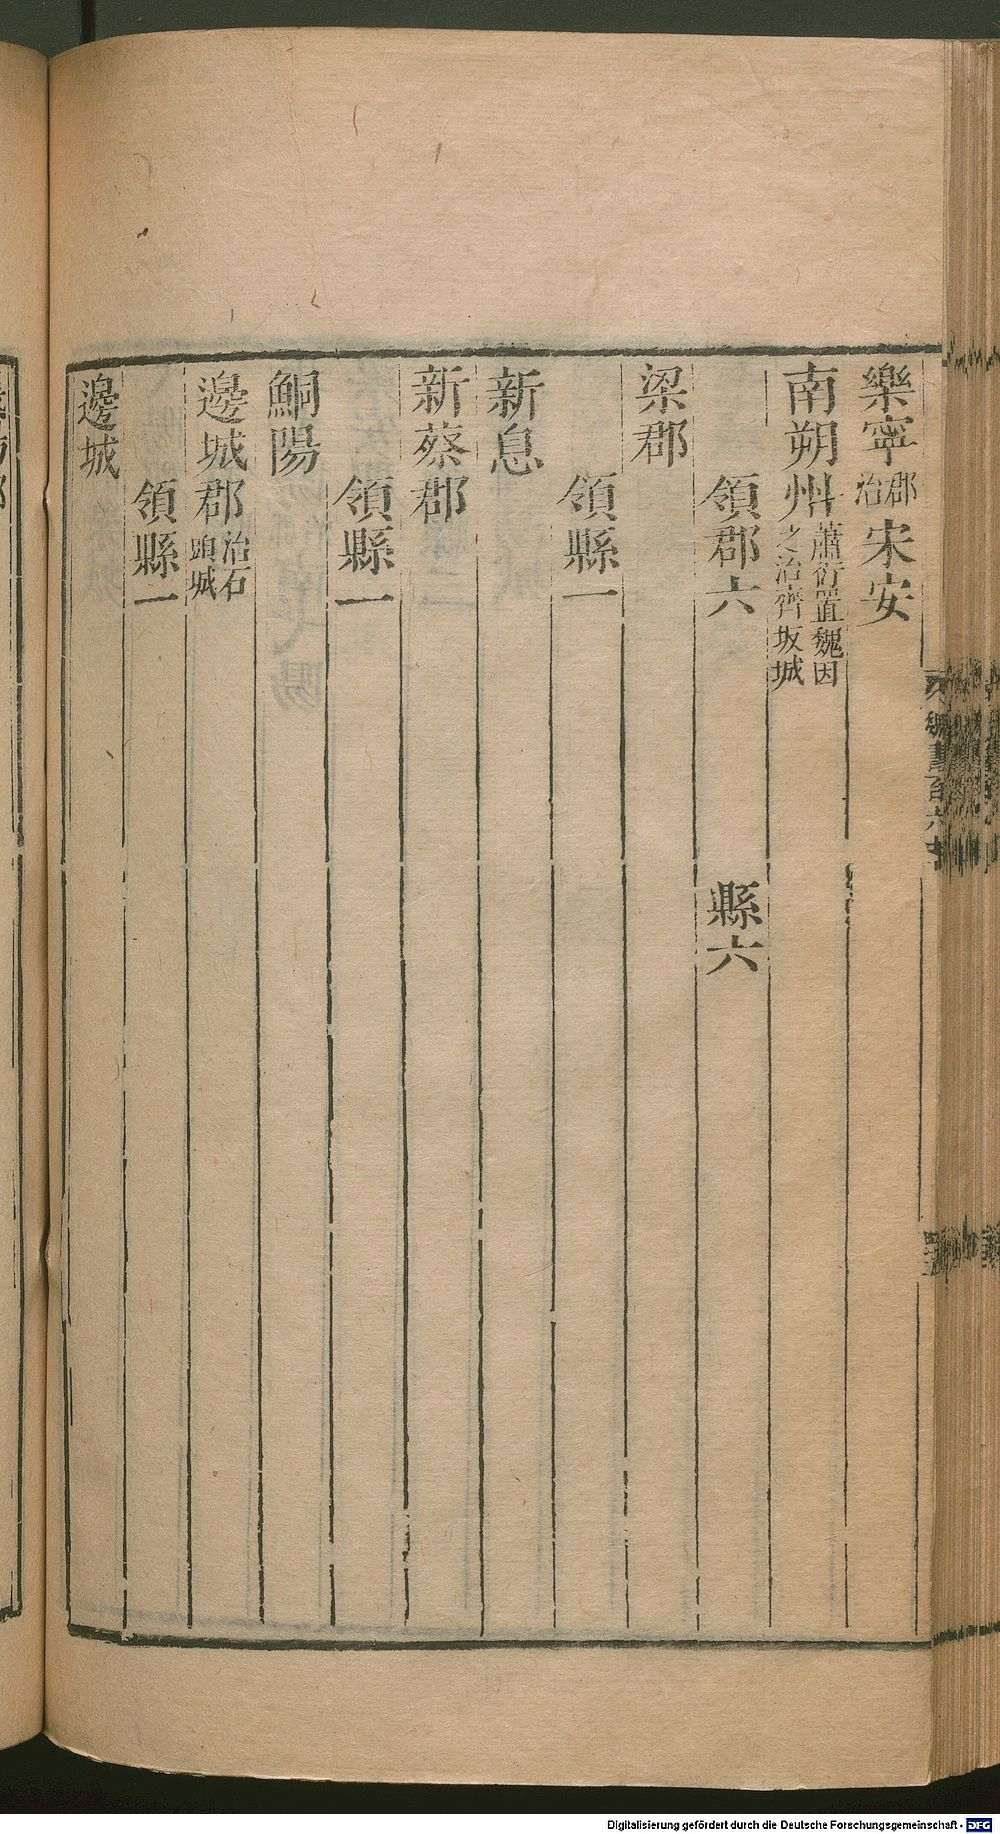 樂寧郡治宋安
南朔州蕭衍置魏因之治齊坂城
領郡六 縣六
梁郡
領縣一
新息
新蔡郡
領縣一
鮦陽
邊城郡治石頭城
領縣一
邊城
Digitalisierung gefördert durch die Deutsche Forschungsgemeinschaft - DFG